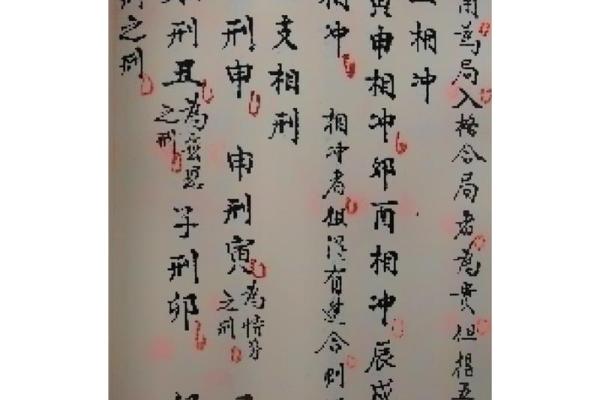 為局入格合局者為貴但
相冲
寅申相冲卯酉相冲辰戌
相冲 相冲者但有合則
支相刑
刑申 申刑寅為恃势之刑
刑丑為無恩之刑 子刑卯
之刑